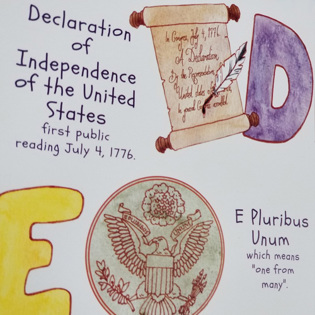 Declaration
of
Independence
of the United
States
first public
reading July 4, 1776.
In Congress, July 4, 1776
A Declaration
By the Representatives
United States
D
E
E Pluribus
Unum
which means
"one from
many".